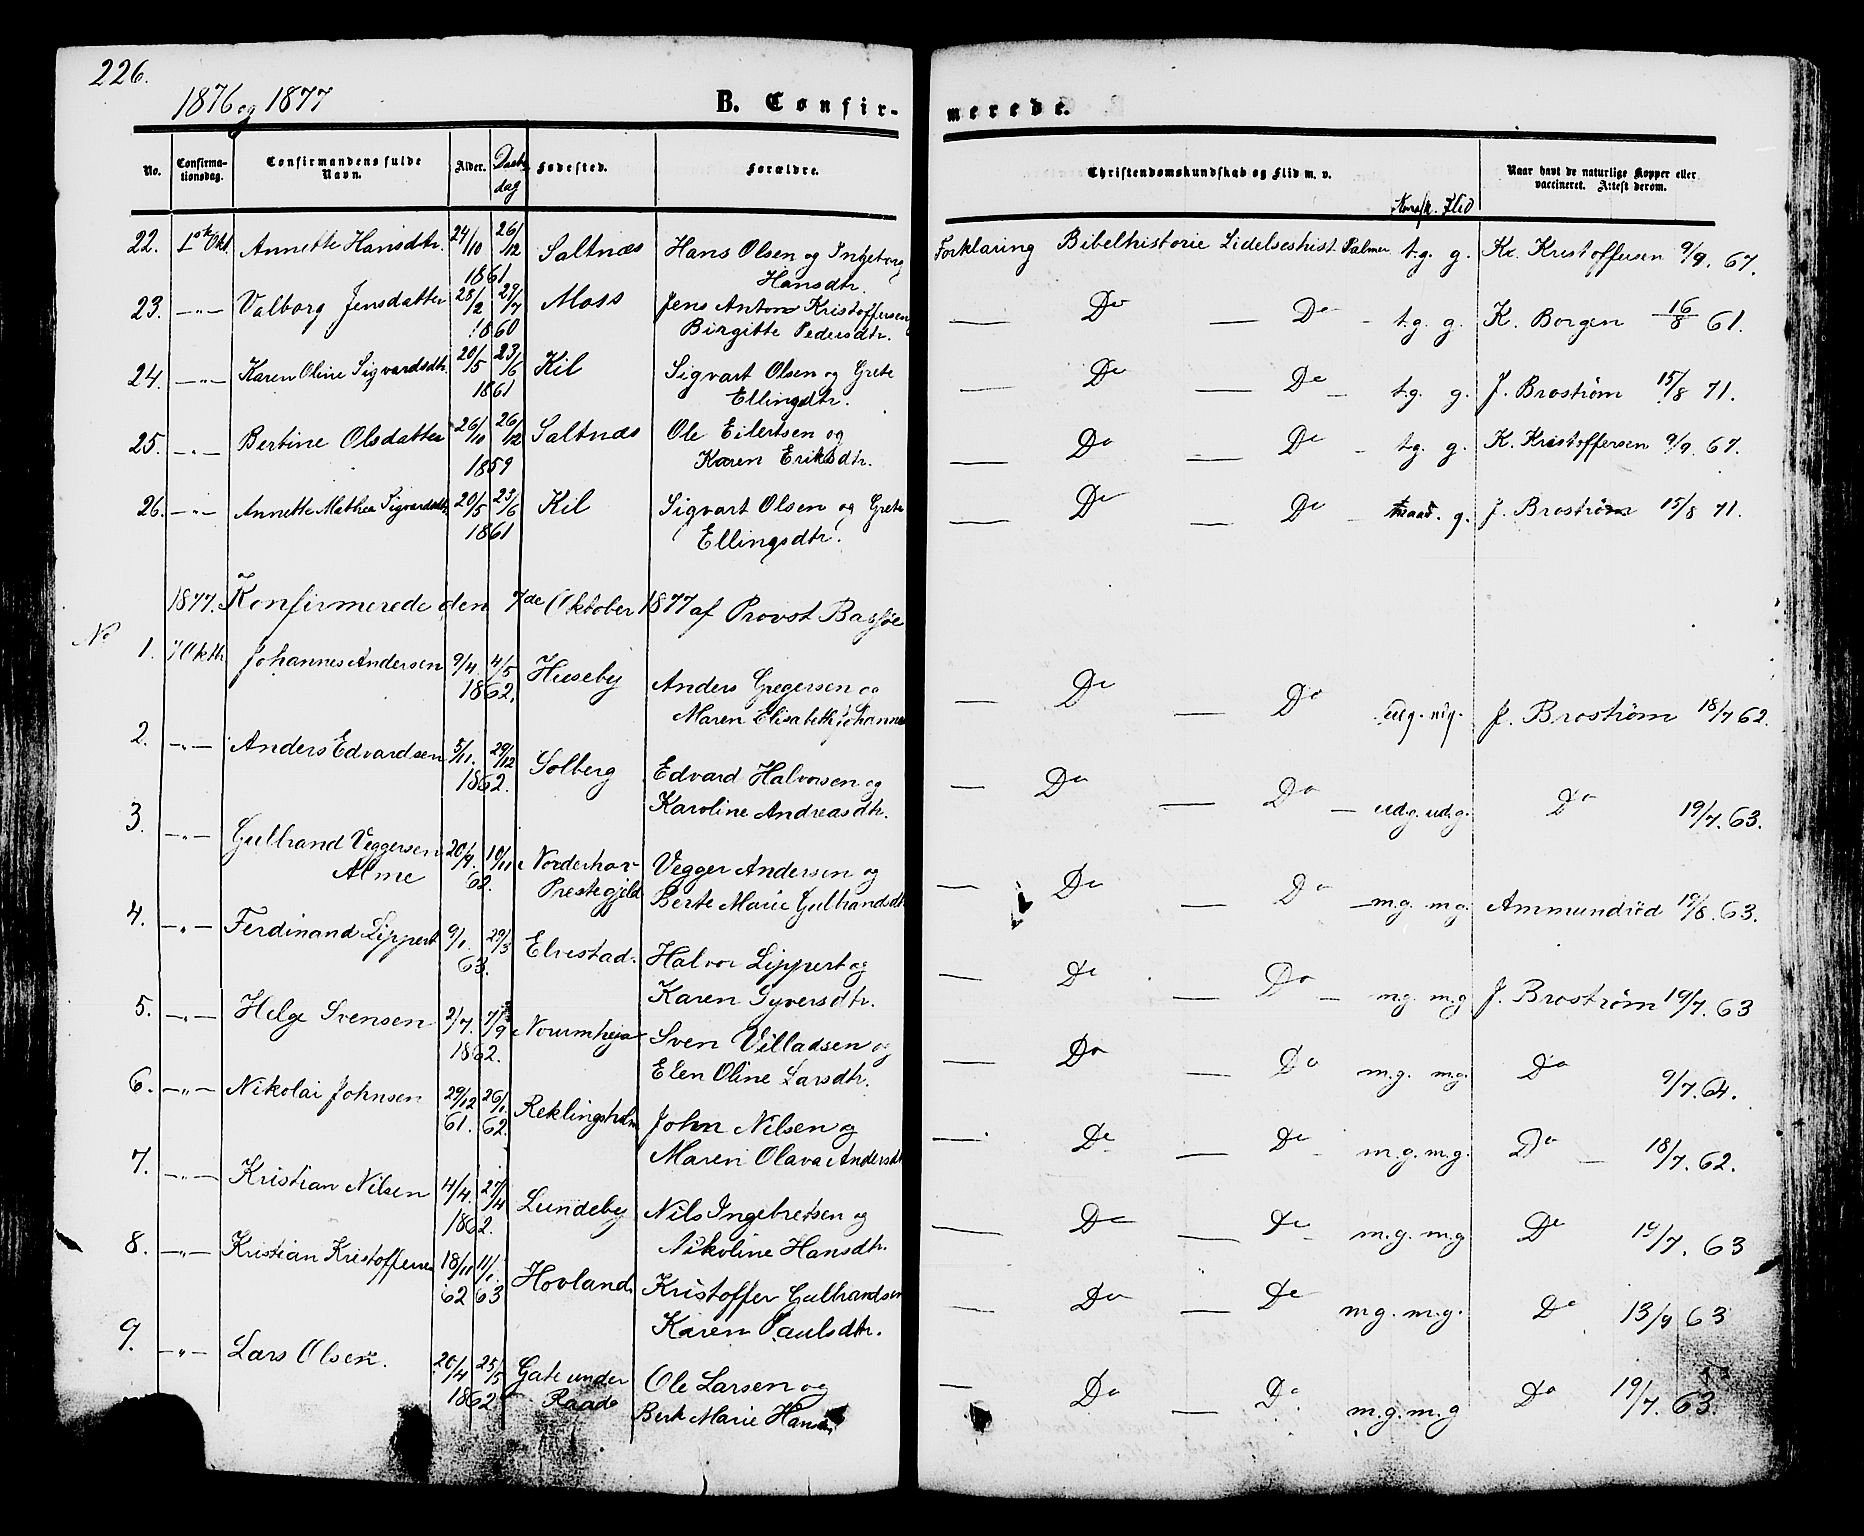 226.
1876 og 1877
B. Confir-
merede.
No. Confirma-tionsdag. Confirmandens fulde Navn. Alder. Daabsdag Fødested. Forældre. Christendomskundskab og Flid m. v. Kundsk. Flid Naar havt de naturlige Kopper eller vaccineret. Attest derom.
22. 1ste Okt. Annette Hansdtr. 24/10 26/12 1861 Saltnæs Hans Olsen og Ingeborg Hansdtr. Forklaring Bibelhistorie Lidelseshist. Salmer t.g. g. Kr. Kristoffersen 9/9. 67.
23. —"— Valborg Jensdatter 28/2 29/7 1860 Moss Jens Anton Kristoffersen Birgitte Pedersdtr. — Do — Do - t.g. g. K. Borgen 16/8 61.
24. —"— Karen Oline Sigvardsdtr. 20/5 23/6 1861 Kil Sigvart Olsen og Grete Ellingsdtr. — Do — Do - t.g. g. J. Brostrøm 15/8 71.
25. —"— Bertine Olsdatter 26/10 26/12 1859 Saltnæs Ole Eilertsen og Karen Eriksdtr. — Do — Do - t.g. g. K. Kristoffersen 9/9. 67.
26. —"— Annette Mathea Sigvardsdtr. 20/5 23/6 1861 Kil Sigvart Olsen og Grete Ellingsdtr. — Do — Do - maad. g. J. Brostrøm 15/8 71.
1877. Konfirmerede den 7de Oktober 1877 af Provst Bassøe
No
1. 7 Oktb Johannes Andersen 9/4 4/5 1862. Huseby Anders Gregersen og Maren Elisabeth Johannes — Do — Do udg. mg. J. Brostrøm 18/7 62.
2. —"— Anders Edvardsen 5/11. 29/12 1862. Solberg Edvard Halvorsen og Karoline Andreasdtr. — Do — Do — udg. udg. Do 19/7. 63.
3. —"— Gulbrand Veggersen Alme 20/9. 10/11 62. Norderhov Prestegjeld Vegger Andersen og Berte Marie Gulbrandsdtr — Do — Do — m.g. m.g. Ammundrød 19/8. 63.
4. —"— Ferdinand Lippert 9/1. 29/3 63. Elvestad. Halvor Lippert og Karen Syversdtr. — Do — Do — m.g. m.g J. Brostrøm 19/7. 63
5. —"— Helge Svensen 2/7. 7/9 1862. Norumheja Sven Villadsen og Elen Oline Larsdtr. — Do — Do m.g. m.g. Do 9/7. 64.
6. —"— Nikolai Johnsen 29/12 61. 26/1 62. Reklingsholm John Nilsen og Maren Olava Andersdtr — Do — Do - m.g. m.g. Do — 18/7. 62.
7. —"— Kristian Nilsen 4/4. 27/4 1862. Lundeby Nils Ingebretsen og Nikoline Hansdtr. — Do — Do - m.g. m.g Do 19/7. 63
8. —"— Kristian Kristoffersen 18/11 62 11/1. 63 Hovland Kristoffer Gulbrandsen Karen Paulsdtr. — Do — Do m.g. m.g. Do 13/9 63
9. —"— Lars Olsen. 20/4 25/5 1862 Gate under Raade Ole Larsen og Berte Marie Hansdtr — Do — Do m.g. m.g Do 19/7. 63.